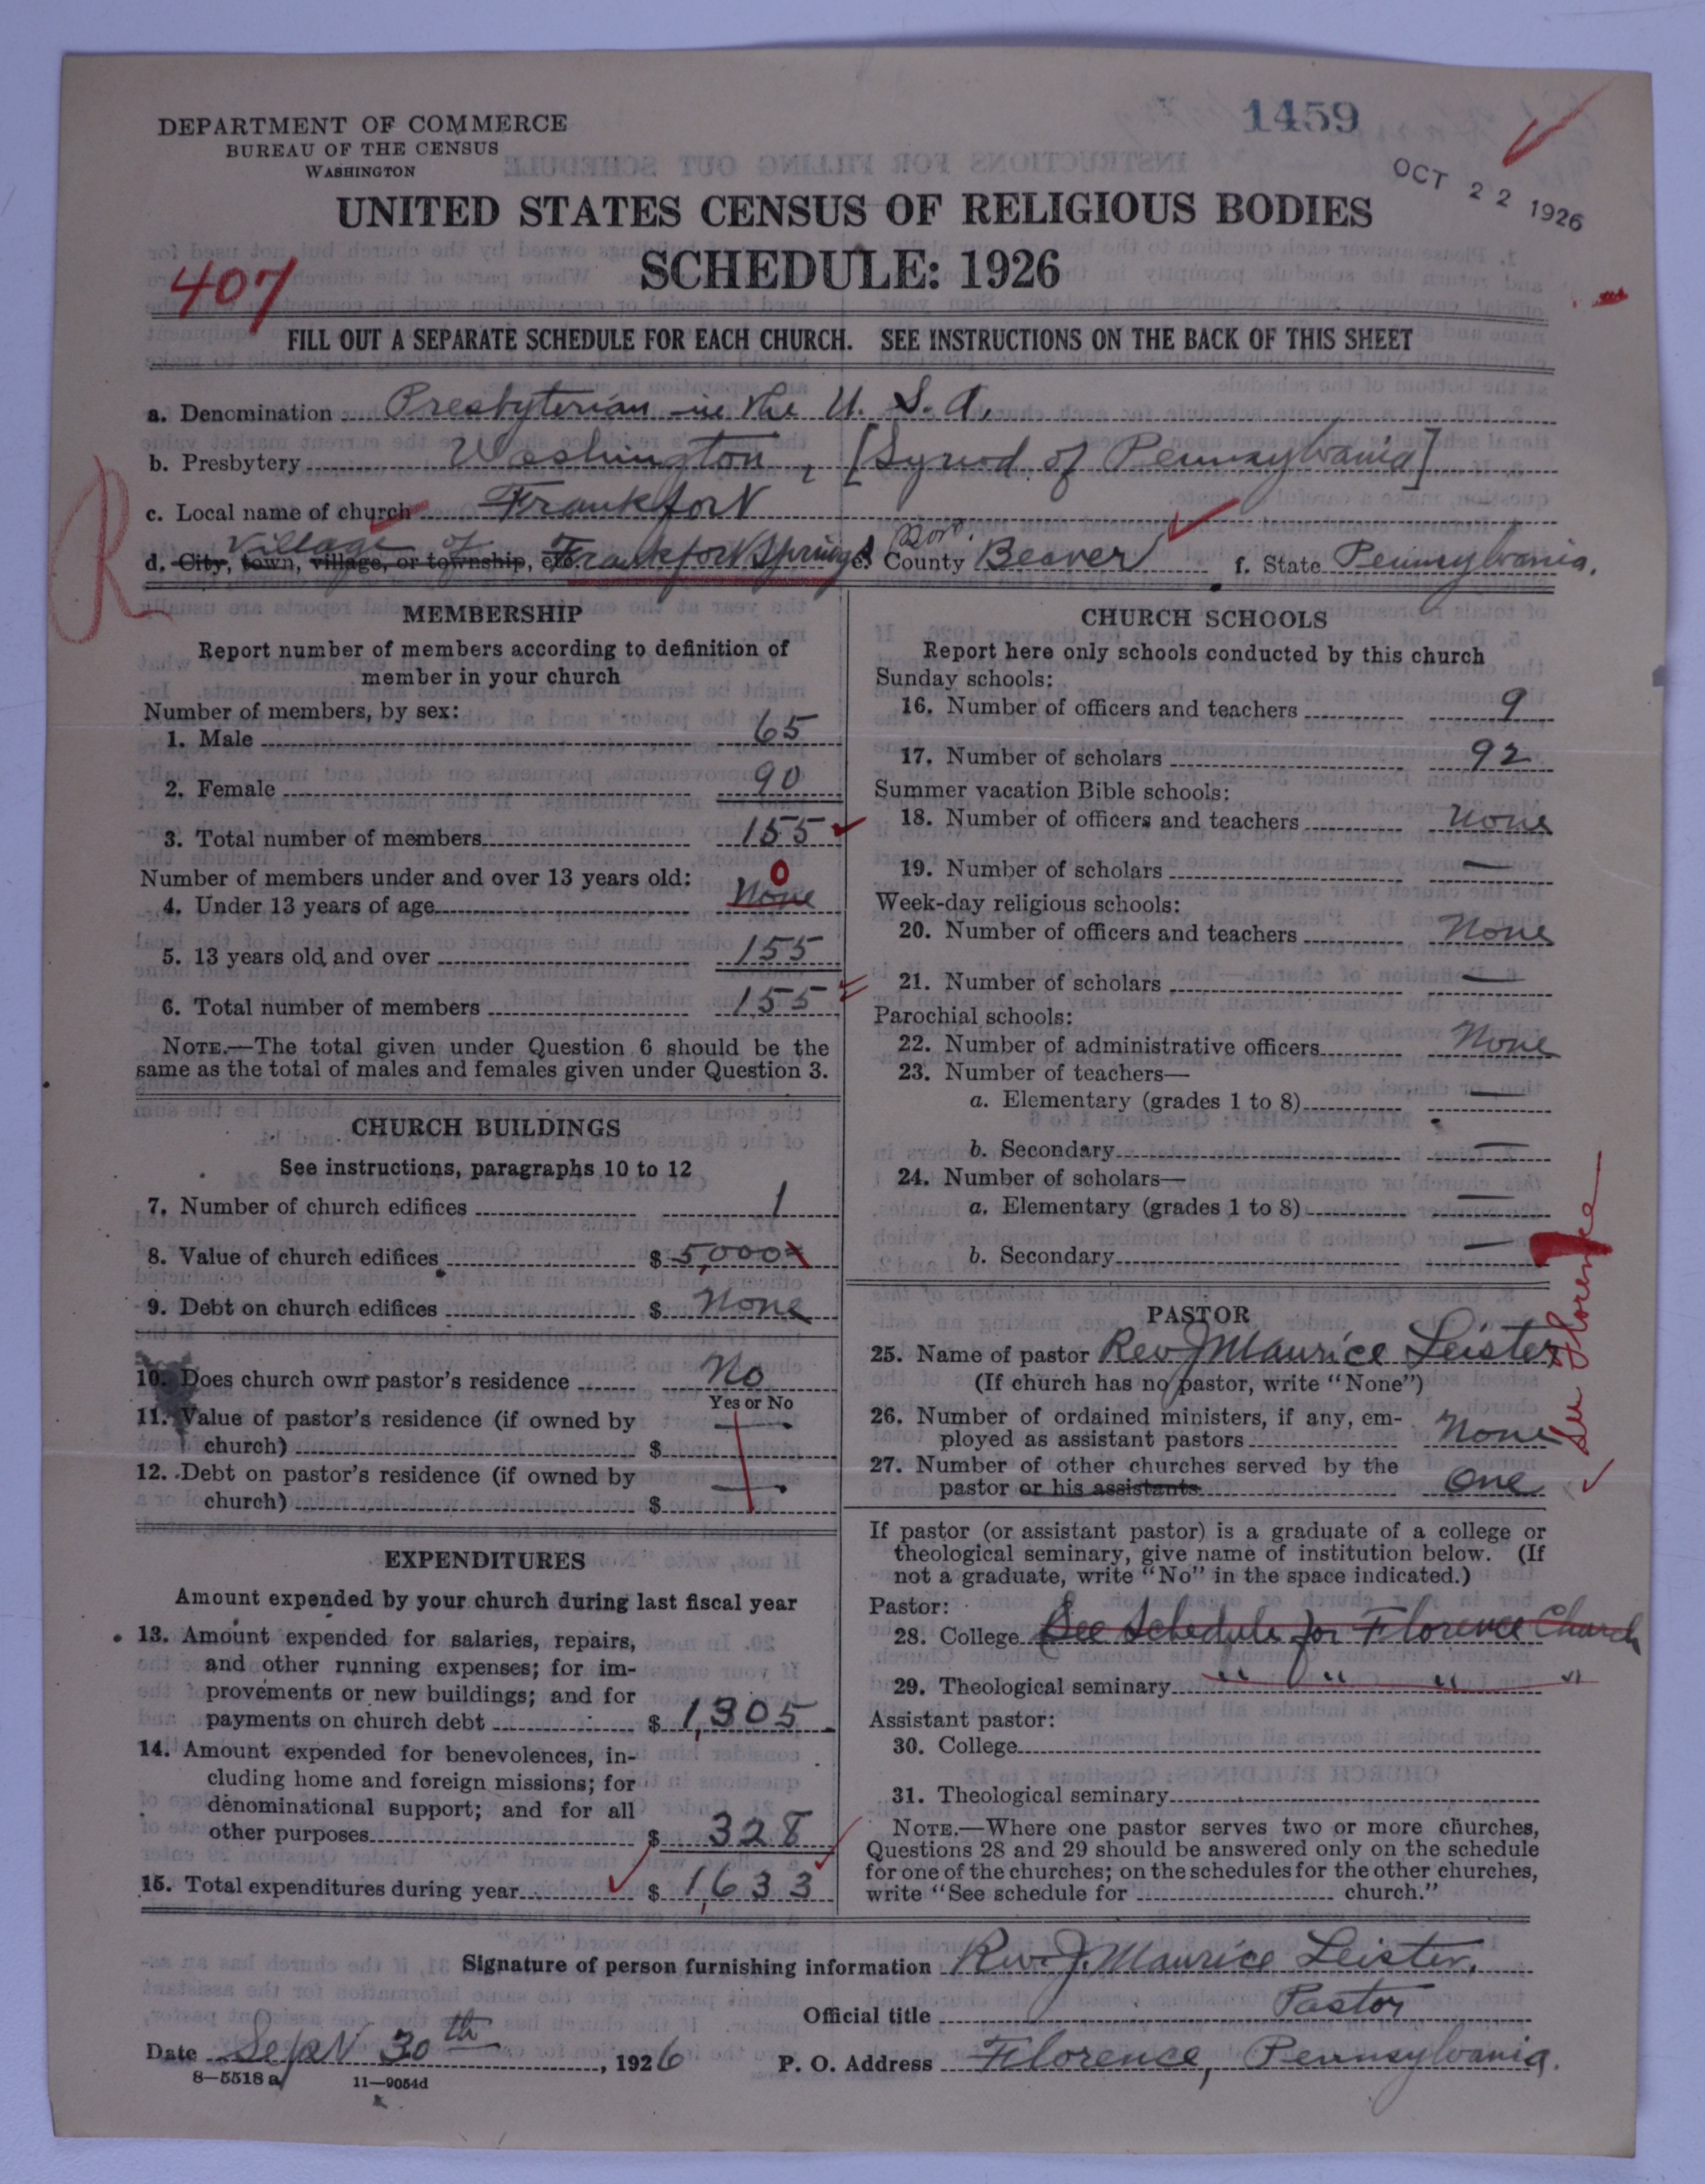 1459
DEPARTMENT OF COMMERCE
BUREAU OF THE CENSUS
WASHINGTON
OCT 22 1926
UNITED STATES CENSUS OF RELIGIOUS BODIES
SCHEDULE: 1926
407
FILL OUT A SEPARATE SCHEDULE FOR EACH CHURCH. SEE INSTRUCTIONS ON THE BACK OF THIS SHEET
a. Denomination Presbyterian in the U. S. A.
b. Presbytery Washington, [Synod of Pennsylvania]
c. Local name of church Frankfort
R
Village of
Bor.
d. City, town, village, or township, etc. Frankfort Springs e. County Beaver f. State Pennsylvania.
MEMBERSHIP
Report number of members according to definition of
member in your church
Number of members, by sex:
1. Male 65
2. Female 90
3. Total number of members 155
Number of members under and over 13 years old: 0
4. Under 13 years of age None
5. 13 years old and over 155
6. Total number of members 155
NOTE.—The total given under Question 6 should be the
same as the total of males and females given under Question 3.
CHURCH BUILDINGS
See instructions, paragraphs 10 to 12
7. Number of church edifices 1
8. Value of church edifices $ 5,000
9. Debt on church edifices $ None
10. Does church own pastor's residence No
Yes or No
11. Value of pastor's residence (if owned by
church) $ —
12. Debt on pastor's residence (if owned by
church) $ —
EXPENDITURES
Amount expended by your church during last fiscal year
13. Amount expended for salaries, repairs,
and other running expenses; for im-
provements or new buildings; and for
payments on church debt $ 1,305
14. Amount expended for benevolences, in-
cluding home and foreign missions; for
denominational support; and for all
other purposes $ 328
15. Total expenditures during year $ 1,633
CHURCH SCHOOLS
Report here only schools conducted by this church
Sunday schools:
16. Number of officers and teachers 9
17. Number of scholars 92
Summer vacation Bible schools:
18. Number of officers and teachers None
19. Number of scholars —
Week-day religious schools:
20. Number of officers and teachers None
21. Number of scholars —
Parochial schools:
22. Number of administrative officers None
23. Number of teachers—
a. Elementary (grades 1 to 8) —
b. Secondary —
24. Number of scholars—
a. Elementary (grades 1 to 8) —
b. Secondary —
PASTOR
25. Name of pastor Rev J Maurice Leister
(If church has no pastor, write "None")
26. Number of ordained ministers, if any, em-
ployed as assistant pastors None
27. Number of other churches served by the
pastor or his assistants One
See Florence
If pastor (or assistant pastor) is a graduate of a college or
theological seminary, give name of institution below. (If
not a graduate, write "No" in the space indicated.)
Pastor:
28. College See Schedule for Florence Church
29. Theological seminary " " " "
Assistant pastor:
30. College
31. Theological seminary
NOTE.—Where one pastor serves two or more churches,
Questions 28 and 29 should be answered only on the schedule
for one of the churches; on the schedules for the other churches,
write "See schedule for church."
Signature of person furnishing information Rev. J. Maurice Leister.
Official title Pastor
Date Sept 30th, 1926 P. O. Address Florence, Pennsylvania.
8—5518 a 11—9054d